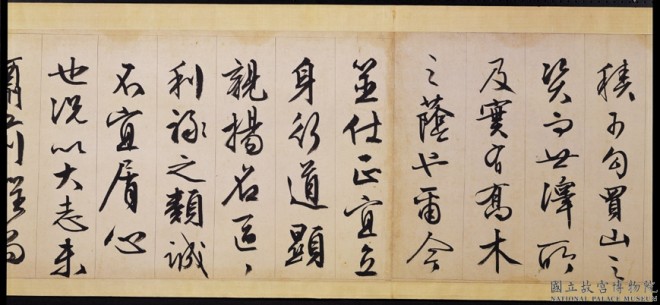 積可勾買山之
資而世澤所
及實有喬木
之蔭也當今
筮仕正宜立
身行道顯
親揚名區〻
利祿之類誠
不宜屑心
也況以大志未
國立故宮博物院
NATIONAL PALACE MUSEUM